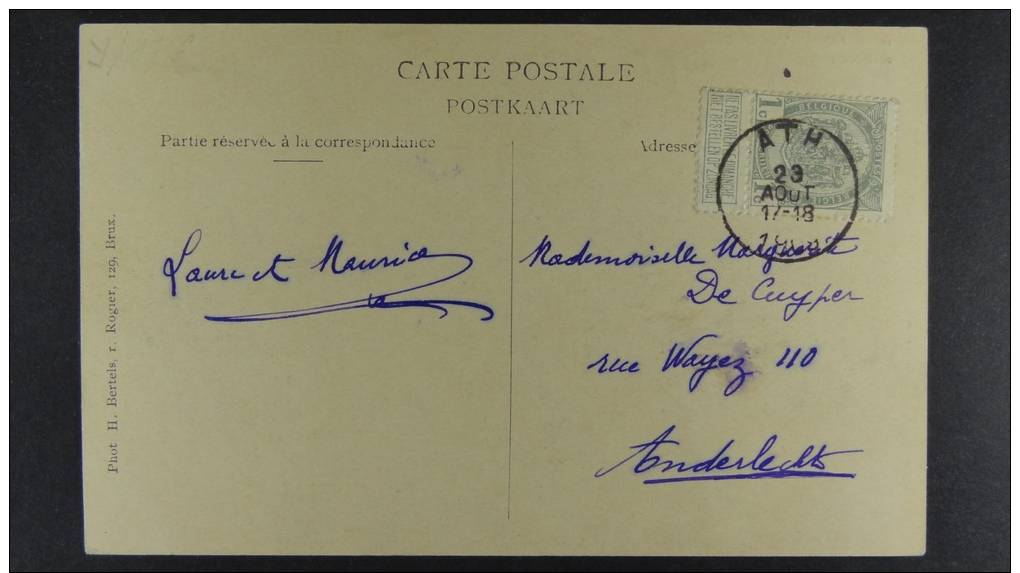 CARTE POSTALE
POSTKAART
Partie réservée à la correspondance
Adresse
BELGIQUE
1 c
ATH
23
AOUT
17-18
Laure et Maurice
Mademoiselle Marguerite
De Cuyper
rue Wayez 110
Anderlecht
Phot H. Bertels, r. Rogier, 129, Brux.